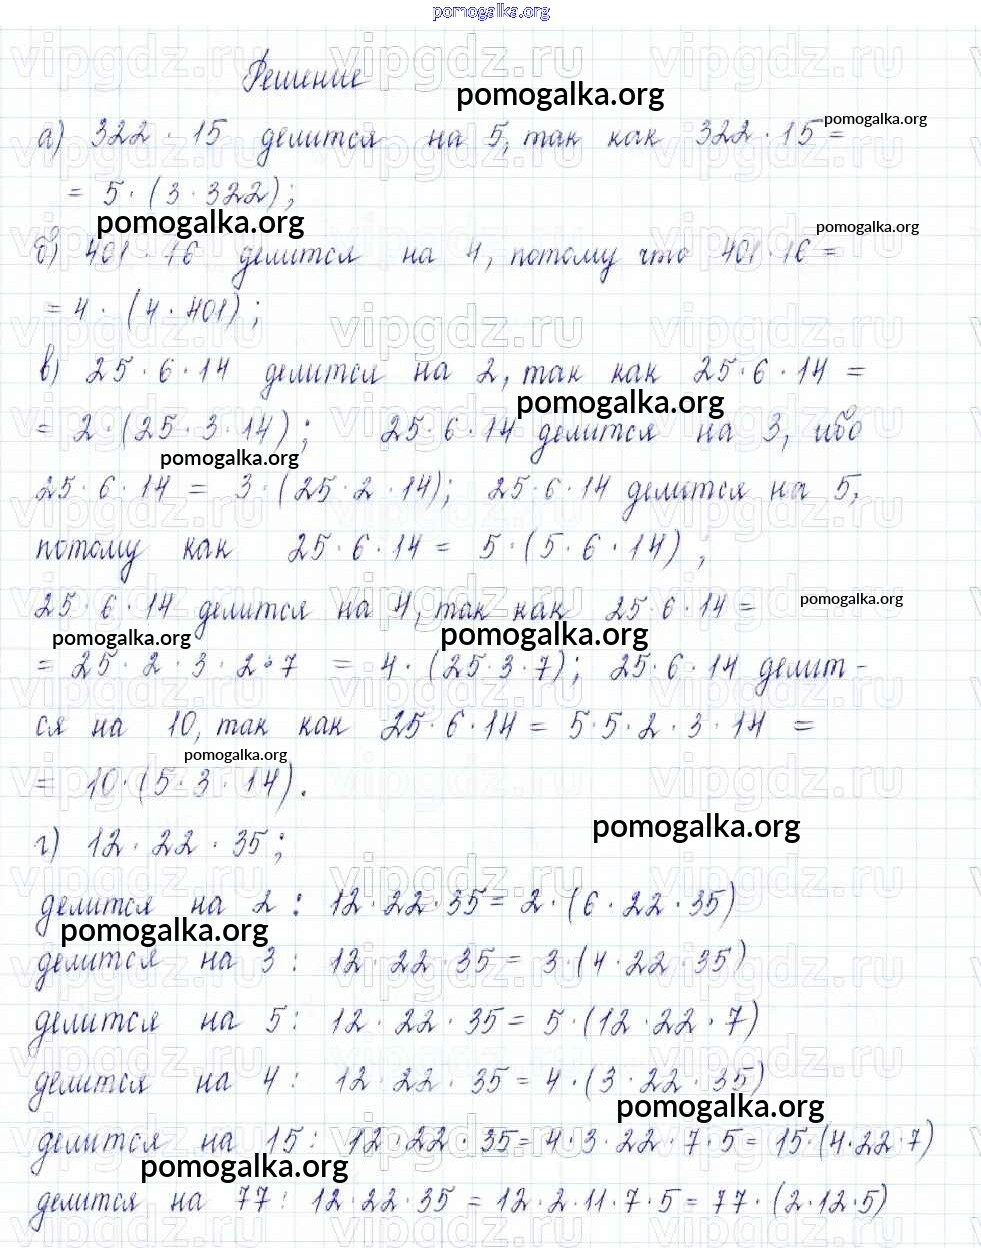 pomogalka.org
Решение
pomogalka.org
а) 322 · 15 делится на 5, так как 322 · 15 =
pomogalka.org
= 5 · (3 · 322);
pomogalka.org
pomogalka.org
б) 401 · 16 делится на 4, потому что 401 · 16 =
= 4 · (4 · 401);
в) 25 · 6 · 14 делится на 2, так как 25 · 6 · 14 =
pomogalka.org
= 2 · (25 · 3 · 14); 25 · 6 · 14 делится на 3, ибо
pomogalka.org
25 · 6 · 14 = 3 · (25 · 2 · 14); 25 · 6 · 14 делится на 5,
потому как 25 · 6 · 14 = 5 · (5 · 6 · 14);
25 · 6 · 14 делится на 4, так как 25 · 6 · 14 =
pomogalka.org
pomogalka.org pomogalka.org
= 25 · 2 · 3 · 2 · 7 = 4 · (25 · 3 · 7); 25 · 6 · 14 делит-
ся на 10, так как 25 · 6 · 14 = 5 · 5 · 2 · 3 · 14 =
pomogalka.org
= 10 · (5 · 3 · 14).
pomogalka.org
г) 12 · 22 · 35;
делится на 2 : 12 · 22 · 35 = 2 · (6 · 22 · 35)
pomogalka.org
делится на 3 : 12 · 22 · 35 = 3 · (4 · 22 · 35)
делится на 5 : 12 · 22 · 35 = 5 · (12 · 22 · 7)
делится на 4 : 12 · 22 · 35 = 4 · (3 · 22 · 35)
pomogalka.org
делится на 15 : 12 · 22 · 35 = 4 · 3 · 22 · 7 · 5 = 15 · (4 · 22 · 7)
pomogalka.org
делится на 77 : 12 · 22 · 35 = 12 · 2 · 11 · 7 · 5 = 77 · (2 · 12 · 5)
vipgdz.ru